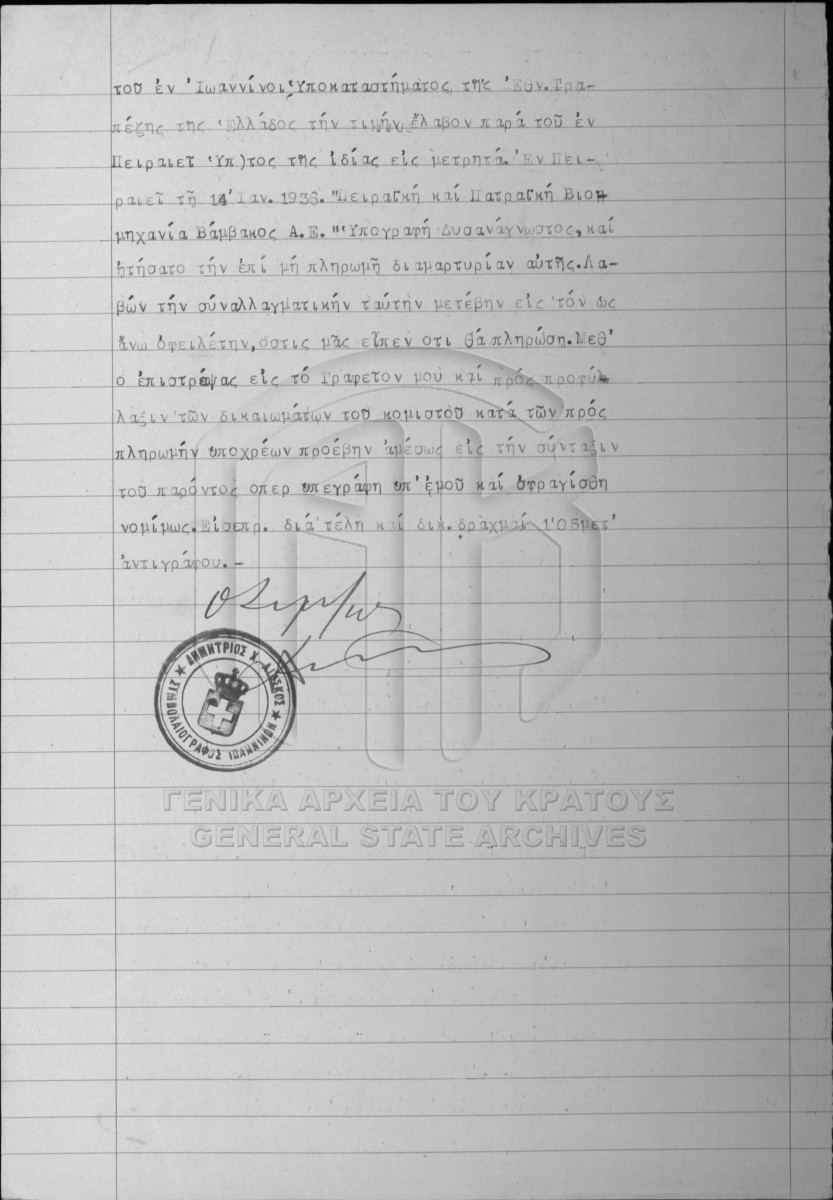 τοῦ ἐν Ἰωαννίνοις Ὑποκαταστήματος τῆς Ἐθν. Τρα-
πέζης της Ἑλλάδος τήν τιμήν ἔλαβον παρά τοῦ ἐν
Πειραιεῖ Ὑπ)τος τῆς ἰδίας εἰς μετρητά. Ἐν Πει-
ραιεῖ τῇ 14 Ἰαν. 1936. "Πειραϊκή καί Πατραϊκή Βιομ
μηχανία Βάμβακος Α.Ε." Ὑπογραφή Δυσανάγνωστος, καί
ᾐτήσατο τήν ἐπί μή πληρωμῇ διαμαρτυρίαν αὐτῆς. Λα-
βών τήν συναλλαγματικήν ταύτην μετέβην εἰς τόν ὡς
ἄνω ὀφειλέτην, ὅστις μᾶς εἶπεν οτι θά πληρώση. Μεθ'
ο ἐπιστρέψας εἰς τό Γραφεῖον μου καί πρός προφύ-
λαξιν τῶν δικαιωμάτων τοῦ κομιστοῦ κατά τῶν πρός
πληρωμήν υποχρέων προέβην ἀμέσως εἰς τήν σύνταξιν
τοῦ παρόντος οπερ υπεγράφη υπ' ἐμοῦ καί ἐσφραγίσθη
νομίμως. Εἰσεπρ. διά τέλη καί δικ. δραχμαί 105 μετ'
ἀντιγράφου.-
ΔΗΜΗΤΡΙΟΣ Χ.
ΣΥΜΒΟΛΑΙΟΓΡΑΦΟΣ ΙΩΑΝΝΙΝΩΝ
ΓΕΝΙΚΑ ΑΡΧΕΙΑ ΤΟΥ ΚΡΑΤΟΥΣ
GENERAL STATE ARCHIVES